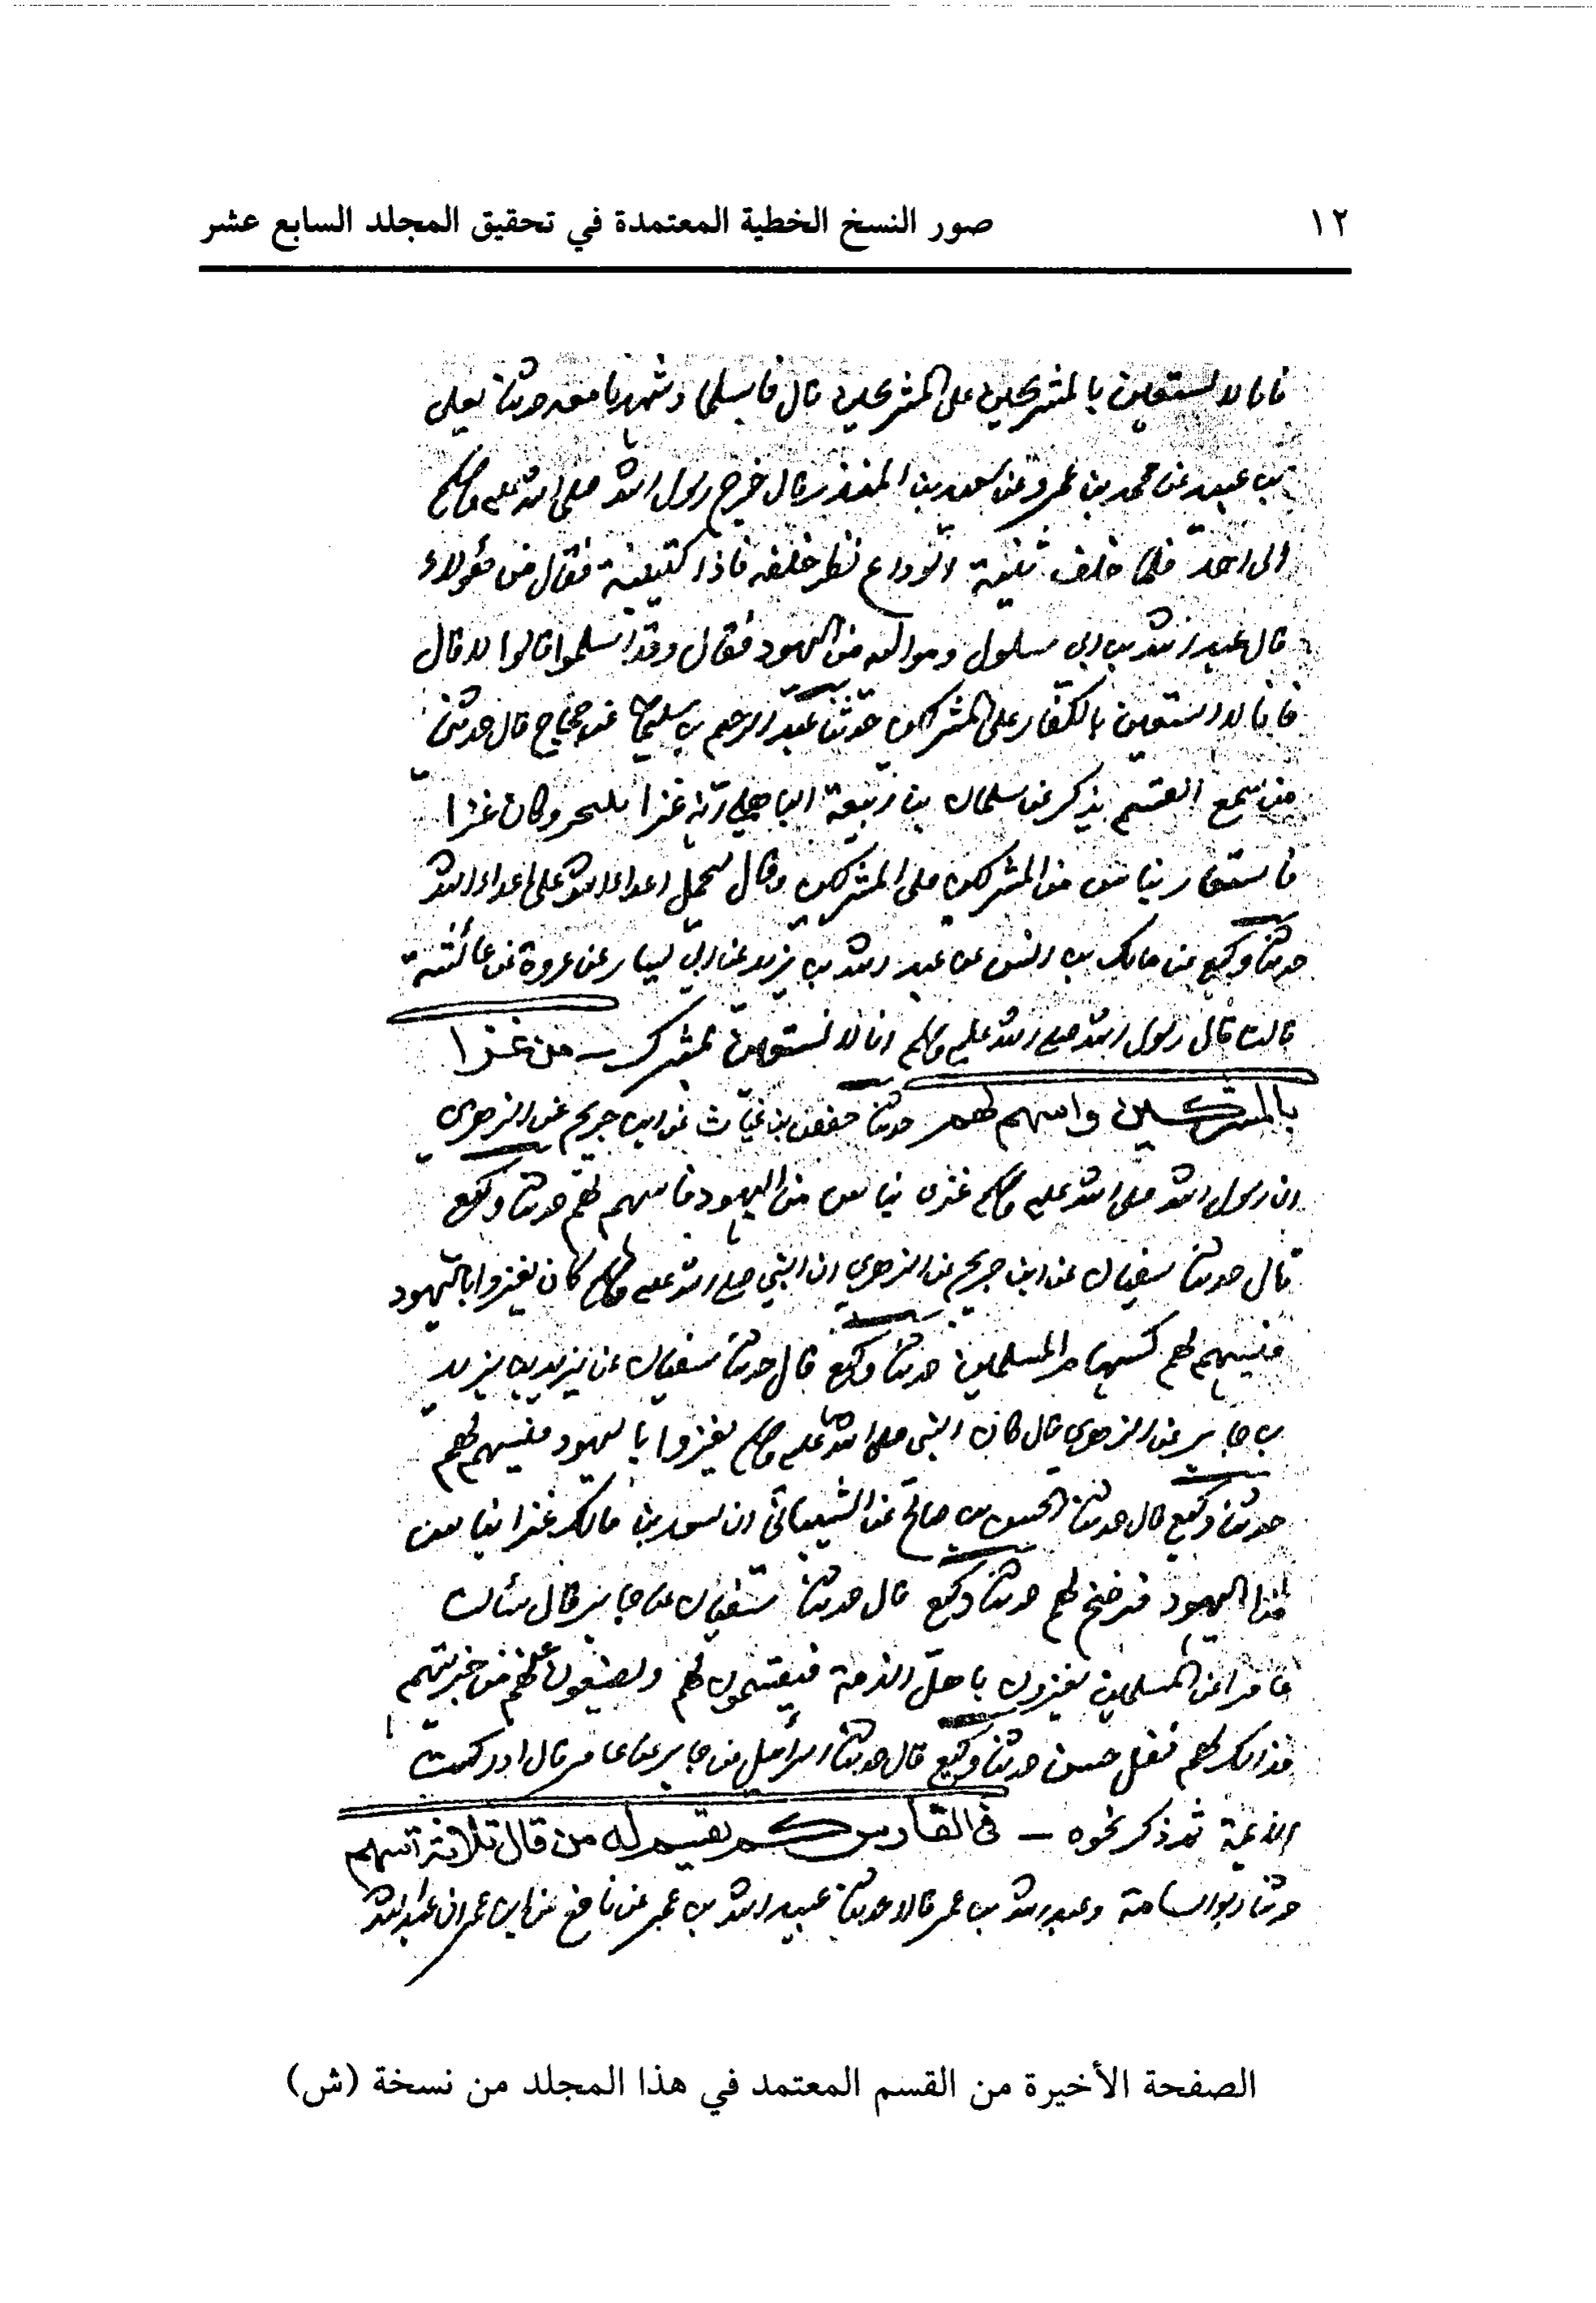 ١٢
صور النسخ الخطية المعتمدة في تحقيق المجلد السابع عشر
فانا لا نستعين بالمشركين على المشركين قال فاسلما وشهدنا معه حدثنا يعلى
بن عبيد عن محمد بن عمرو عن سعد بن المنذر قال خرج رسول الله صلى الله عليه وسلم
الى احد فلما خلف ثنية الوداع نظر خلفه فاذا كتيبة فقال من هؤلاء
قال عبد الله بن ابي سلول ومواليه من اليهود فقال وقد اسلموا قالوا لا قال
فانا لا نستعين بالكفار على المشركين حدثنا عبد الرحيم بن سليمان عن حجاج قال حدثني
من سمع القسم يذكر عن سلمان بن ربيعة الباهلي انه غزا بلنجر وكان غزا
فاستعار بناس من المشركين على المشركين وقال لنحمل اعداء الله على اعداء الله
حدثنا وكيع عن مالك بن انس عن عبد الله بن يزيد عن ابي نيار عن عروة عن عائشة
قالت قال رسول الله صلى الله عليه وسلم انا لا نستعين بمشرك ـ من غزا
بالمشركين واسهم لهم حدثنا حفص بن غياث عن ابن جريج عن الزهري
ان رسول الله صلى الله عليه وسلم غزا بناس من اليهود فاسهم لهم حدثنا وكيع
قال حدثنا سفيان عن ابن جريج عن الزهري ان النبي صلى الله عليه وسلم كان يغزوا باليهود
فيسهم لهم كسهام المسلمين حدثنا وكيع قال حدثنا سفيان عن يزيد بن يزيد
بن جابر عن الزهري قال كان النبي صلى الله عليه وسلم يغزوا باليهود فيسهم لهم
حدثنا وكيع قال حدثنا الحسن بن صالح عن الشيباني ان سعد بن مالك غزا بناس
من اليهود فرضخ لهم حدثنا وكيع قال حدثنا سفيان عن جابر قال سألت
عامرا عن المسلمين يغزون باهل الذمة فيقسمون لهم ويضعون عنهم من جزيتهم
فذالك لهم نفل حسن حدثنا وكيع قال حدثنا اسرائيل عن جابر عن عامر قال ادركت
الائمة ثم ذكر نحوه ـ في الفارس كم يقسم له من قال ثلاثة اسهم
حدثنا ابو اسامة وعبد الله بن عمر قالا حدثنا عبيد الله بن عمر عن نافع عن ابن عمر ان عبد الله
الصفحة الأخيرة من القسم المعتمد في هذا المجلد من نسخة (ش)